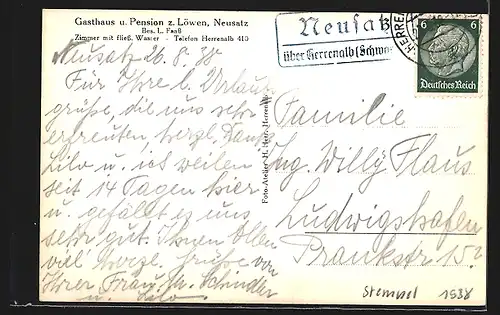 Gasthaus u. Pension z. Löwen, Neusatz
Bes. L. Faaß
Zimmer mit fließ. Wasser - Telefon Herrenalb 410
Neusatz 26.8.38
Für Ihre l. Urlaubs
grüße, die uns sehr
erfreuten herzl. Dank
Lilo u. ich weilen
seit 14 Tagen hier
u. gefällt es uns
sehr gut. Ihnen Allen
viel herzl. Grüße von
Ihrer Frau M. Schindler
u. Lilo
Foto-Atelier H. Herr, Herrenalb
Neusatz
über Herrenalb (Schwa
HERRE
6 6
Deutsches Reich
Familie
Ing. Willy Flaus
Ludwigshafen
Prankstr 15
Stempel 1938